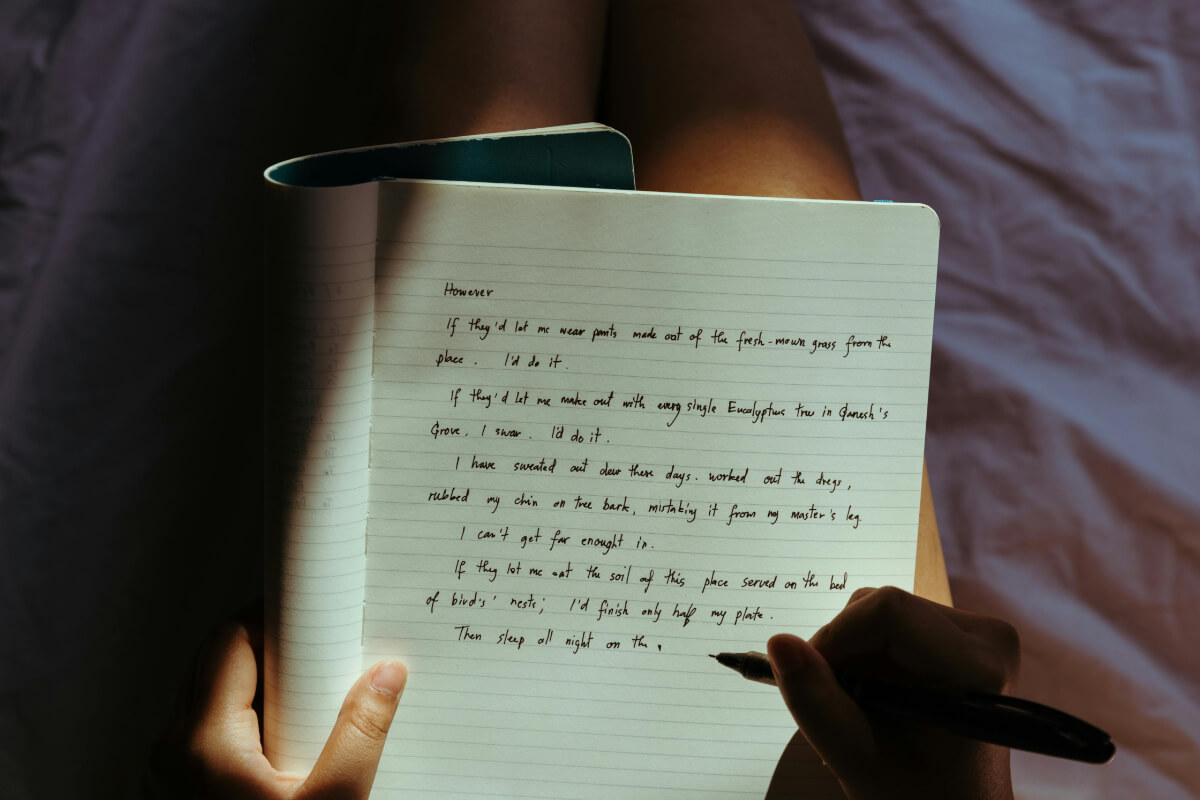 However
If they'd let me wear pants made out of the fresh-mown grass from the
place. I'd do it.
If they'd let me make out with every single Eucalyptus tree in Ganesh's
Grove. I swar. I'd do it.
I have sweated out dew these days. worked out the dregs,
rubbed my chin on tree bark, mistaking it from my master's leg.
I can't get far enought in.
If they let me eat the soil of this place served on the bed
of bird's' nests; I'd finish only half my plate.
Then sleep all night on the